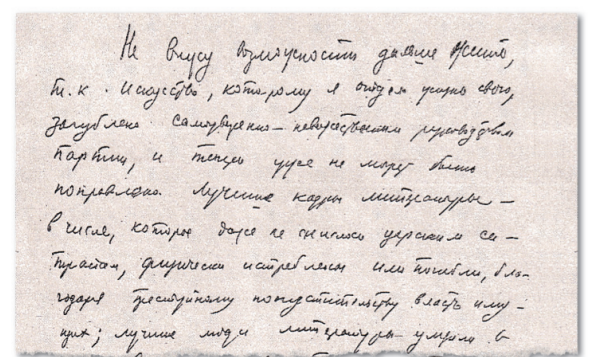 Не вижу возможности дальше жить,
т.к. искусство, которому я отдал жизнь свою,
загублено самоуверенно-невежественным руководством
партии, и теперь уже не может быть
поправлено. Лучшие кадры литературы –
в числе, которое даже не снилось царским са-
трапам, физически истреблены или погибли, бла-
годаря преступному попустительству власть иму-
щих; лучшие люди литературы умерли в